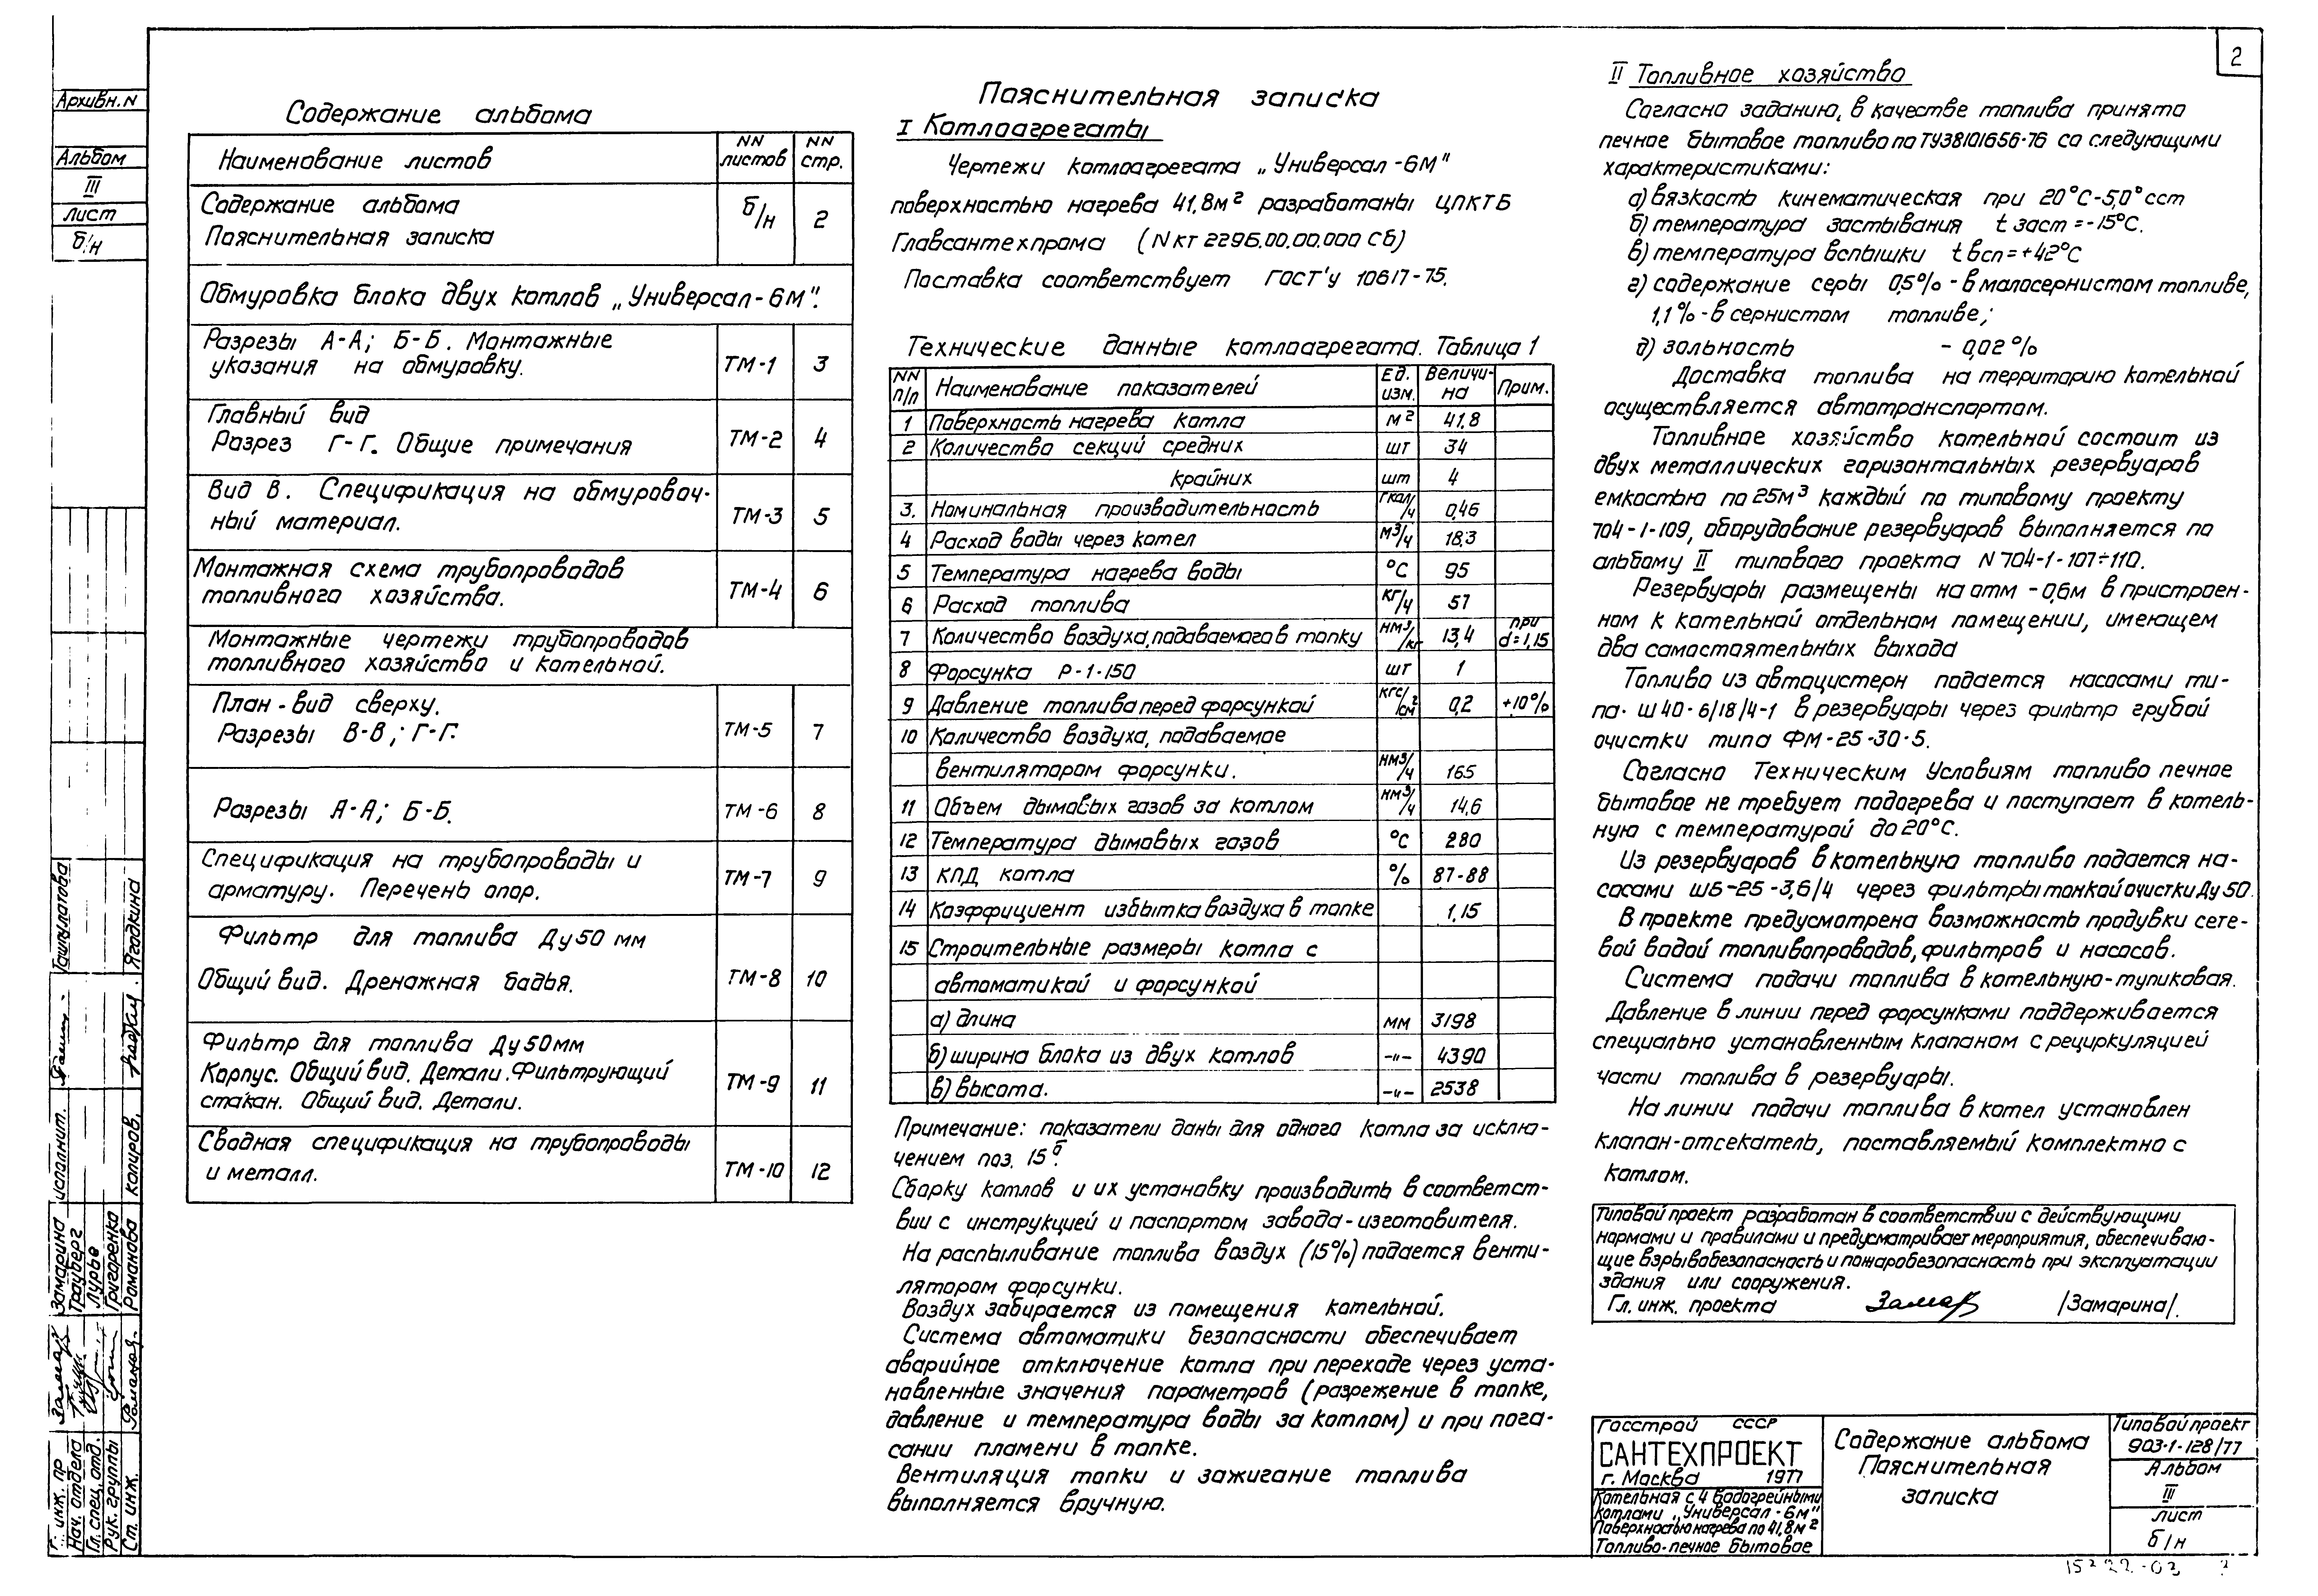 2
Архивн. N
Альбом
III
лист
б/н
Содержание альбома
Наименование листов
NN листов
NN стр.
Содержание альбома
Пояснительная записка
б/н
2
Обмуровка блока двух котлов „Универсал-6М".
Разрезы А-А; Б-Б. Монтажные
указания на обмуровку.
ТМ-1
3
Главный вид
Разрез Г-Г. Общие примечания
ТМ-2
4
Вид В. Спецификация на обмуровоч-
ный материал.
ТМ-3
5
Монтажная схема трубопроводов
топливного хозяйства.
ТМ-4
6
Монтажные чертежи трубопроводов
топливного хозяйство и котельной.
План-вид сверху.
Разрезы В-В; Г-Г.
ТМ-5
7
Разрезы А-А; Б-Б.
ТМ-6
8
Спецификация на трубопроводы и
арматуру. Перечень опор.
ТМ-7
9
Фильтр для топлива Ду50 мм
Общий вид. Дренажная бадья.
ТМ-8
10
Фильтр для топлива Ду50мм
Корпус. Общий вид. Детали. Фильтрующий
стакан. Общий вид. Детали.
ТМ-9
11
Сводная спецификация на трубопроводы
и металл.
ТМ-10
12
Пояснительная записка
I Котлоагрегаты
Чертежи котлоагрегата „Универсал-6М"
поверхностью нагрева 41,8м² разработаны ЦПКТБ
Главсантехпрома (N кт 2296.00.00.000 Сб)
Поставка соответствует ГОСТ'у 10617-75.
Технические данные котлоагрегата. Таблица 1
NN п/п Наименование показателей Ед. изм. Величи-на Прим.
1 Поверхность нагрева котла м² 41,8
2 Количество секций средних шт 34
крайних шт 4
3. Номинальная производительность Гкал/ч 0,46
4 Расход воды через котел м3/ч 18,3
5 Температура нагрева воды °С 95
6 Расход топлива кг/ч 57
7 Количество воздуха, подаваемого в топку нм3/кг 13,4 при d=1,15
8 Форсунка Р-1-150 шт 1
9 Давление топлива перед форсункой кгс/см² 0,2 +10%
10 Количество воздуха, подаваемое
вентилятором форсунки. нм3/ч 165
11 Объем дымовых газов за котлом нм3/ч 14,6
12 Температура дымовых газов °С 280
13 КПД котла % 87-88
14 Коэффициент избытка воздуха в топке 1,15
15 Строительные размеры котла с
автоматикой и форсункой
а) длина мм 3198
б) ширина блока из двух котлов -"- 4390
в) высота. -"- 2538
Примечание: показатели даны для одного котла за исклю-
чением поз. 15б.
Сборку котлов и их установку производить в соответст-
вии с инструкцией и паспортом завода-изготовителя.
На распыливание топлива воздух (15%) подается венти-
лятором форсунки.
Воздух забирается из помещения котельной.
Система автоматики безопасности обеспечивает
аварийное отключение котла при переходе через уста-
новленные значения параметров (разрежение в топке,
давление и температура воды за котлом) и при пога-
сании пламени в топке.
Вентиляция топки и зажигание топлива
выполняется вручную.
II Топливное хозяйство
Согласно заданию, в качестве топлива принято
печное бытовое топливо по ТУ38101656-76 со следующими
характеристиками:
а) вязкость кинематическая при 20°С-5,0° сст
б) температура застывания t заст =-15°С.
в) температура вспышки t всп=+42°С
г) содержание серы 0,5% - в малосернистом топливе,
1,1% - в сернистом топливе;
д) зольность - 0,02%
Доставка топлива на территорию котельной
осуществляется автотранспортом.
Топливное хозяйство котельной состоит из
двух металлических горизонтальных резервуаров
емкостью по 25м³ каждый по типовому проекту
704-1-109, оборудование резервуаров выполняется по
альбому II типового проекта N 704-1-107÷110.
Резервуары размещены на отм -0,6м в пристроен-
ном к котельной отдельном помещении, имеющем
два самостоятельных выхода
Топливо из автоцистерн подается насосами ти-
па· Ш40-6/18/4-1 в резервуары через фильтр грубой
очистки типа ФМ-25-30-5.
Согласно Техническим Условиям топливо печное
бытовое не требует подогрева и поступает в котель-
ную с температурой до 20°С.
Из резервуаров в котельную топливо подается на-
сосами ШБ-25-3,6/4 через фильтры тонкой очистки Ду 50.
В проекте предусмотрена возможность продувки сете-
вой водой топливопроводов, фильтров и насосов.
Система подачи топлива в котельную-тупиковая.
Давление в линии перед форсунками поддерживается
специально установленным клапаном с рециркуляцией
части топлива в резервуары.
На линии подачи топлива в котел установлен
клапан-отсекатель, поставляемый комплектно с
котлом.
Типовой проект разработан в соответствии с действующими
нормами и правилами и предусматривает мероприятия, обеспечиваю-
щие взрывобезопасность и пожаробезопасность при эксплуатации
здания или сооружения.
Гл. инж. проекта /Замарина/.
Госстрой СССР
САНТЕХПРОЕКТ
г. Москва 1977
Котельная с 4 водогрейными
котлами „Универсал-6м"
Поверхностью нагрева по 41,8м²
Топливо-печное бытовое
Содержание альбома
Пояснительная
записка
Типовой проект
903-1-128/77
Альбом
III
лист
б/н
Г. инж. пр Замарина исполнит. Ташпулатова
Нач. отдела Трауберг
Гл. спец. отд. Лурье
Рук. группы Григоренко
Ст. инж. Романова копиров. Ягодкина